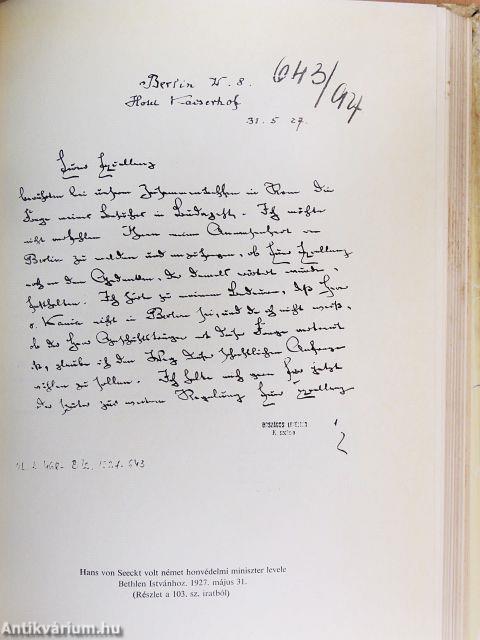 Berlin W. 8.
Hotel Kaiserhof
643/94
31. 5. 27.
Eurer Exzellenz
berührten bei unserm Zusammentreffen in Rom die
Frage meines Besuches in Budapest. Ich möchte
nicht verfehlen Ihnen meine Anwesenheit in
Berlin zu melden und anzufragen, ob Eure Exzellenz
noch an dem Gedanken, der damals erörtert wurde,
festhalten. Ich höre zu meinem Bedauern, daß Herr
v. Kania nicht in Berlin sei, und da ich nicht weiß,
ob der Herr Geschäftsträger mit dieser Frage vertraut
ist, glaube ich den Weg dieser schriftlichen Anfrage
wählen zu sollen. Ich halte mich gern für jetzt
oder später zur weiteren Regelung Eurer Exzellenz
ORSZÁGOS LEVÉLTÁR
K szekció
Hans von Seeckt volt német honvédelmi miniszter levele
Bethlen Istvánhoz. 1927. május 31.
(Részlet a 103. sz. iratból)
Antikvárium.hu